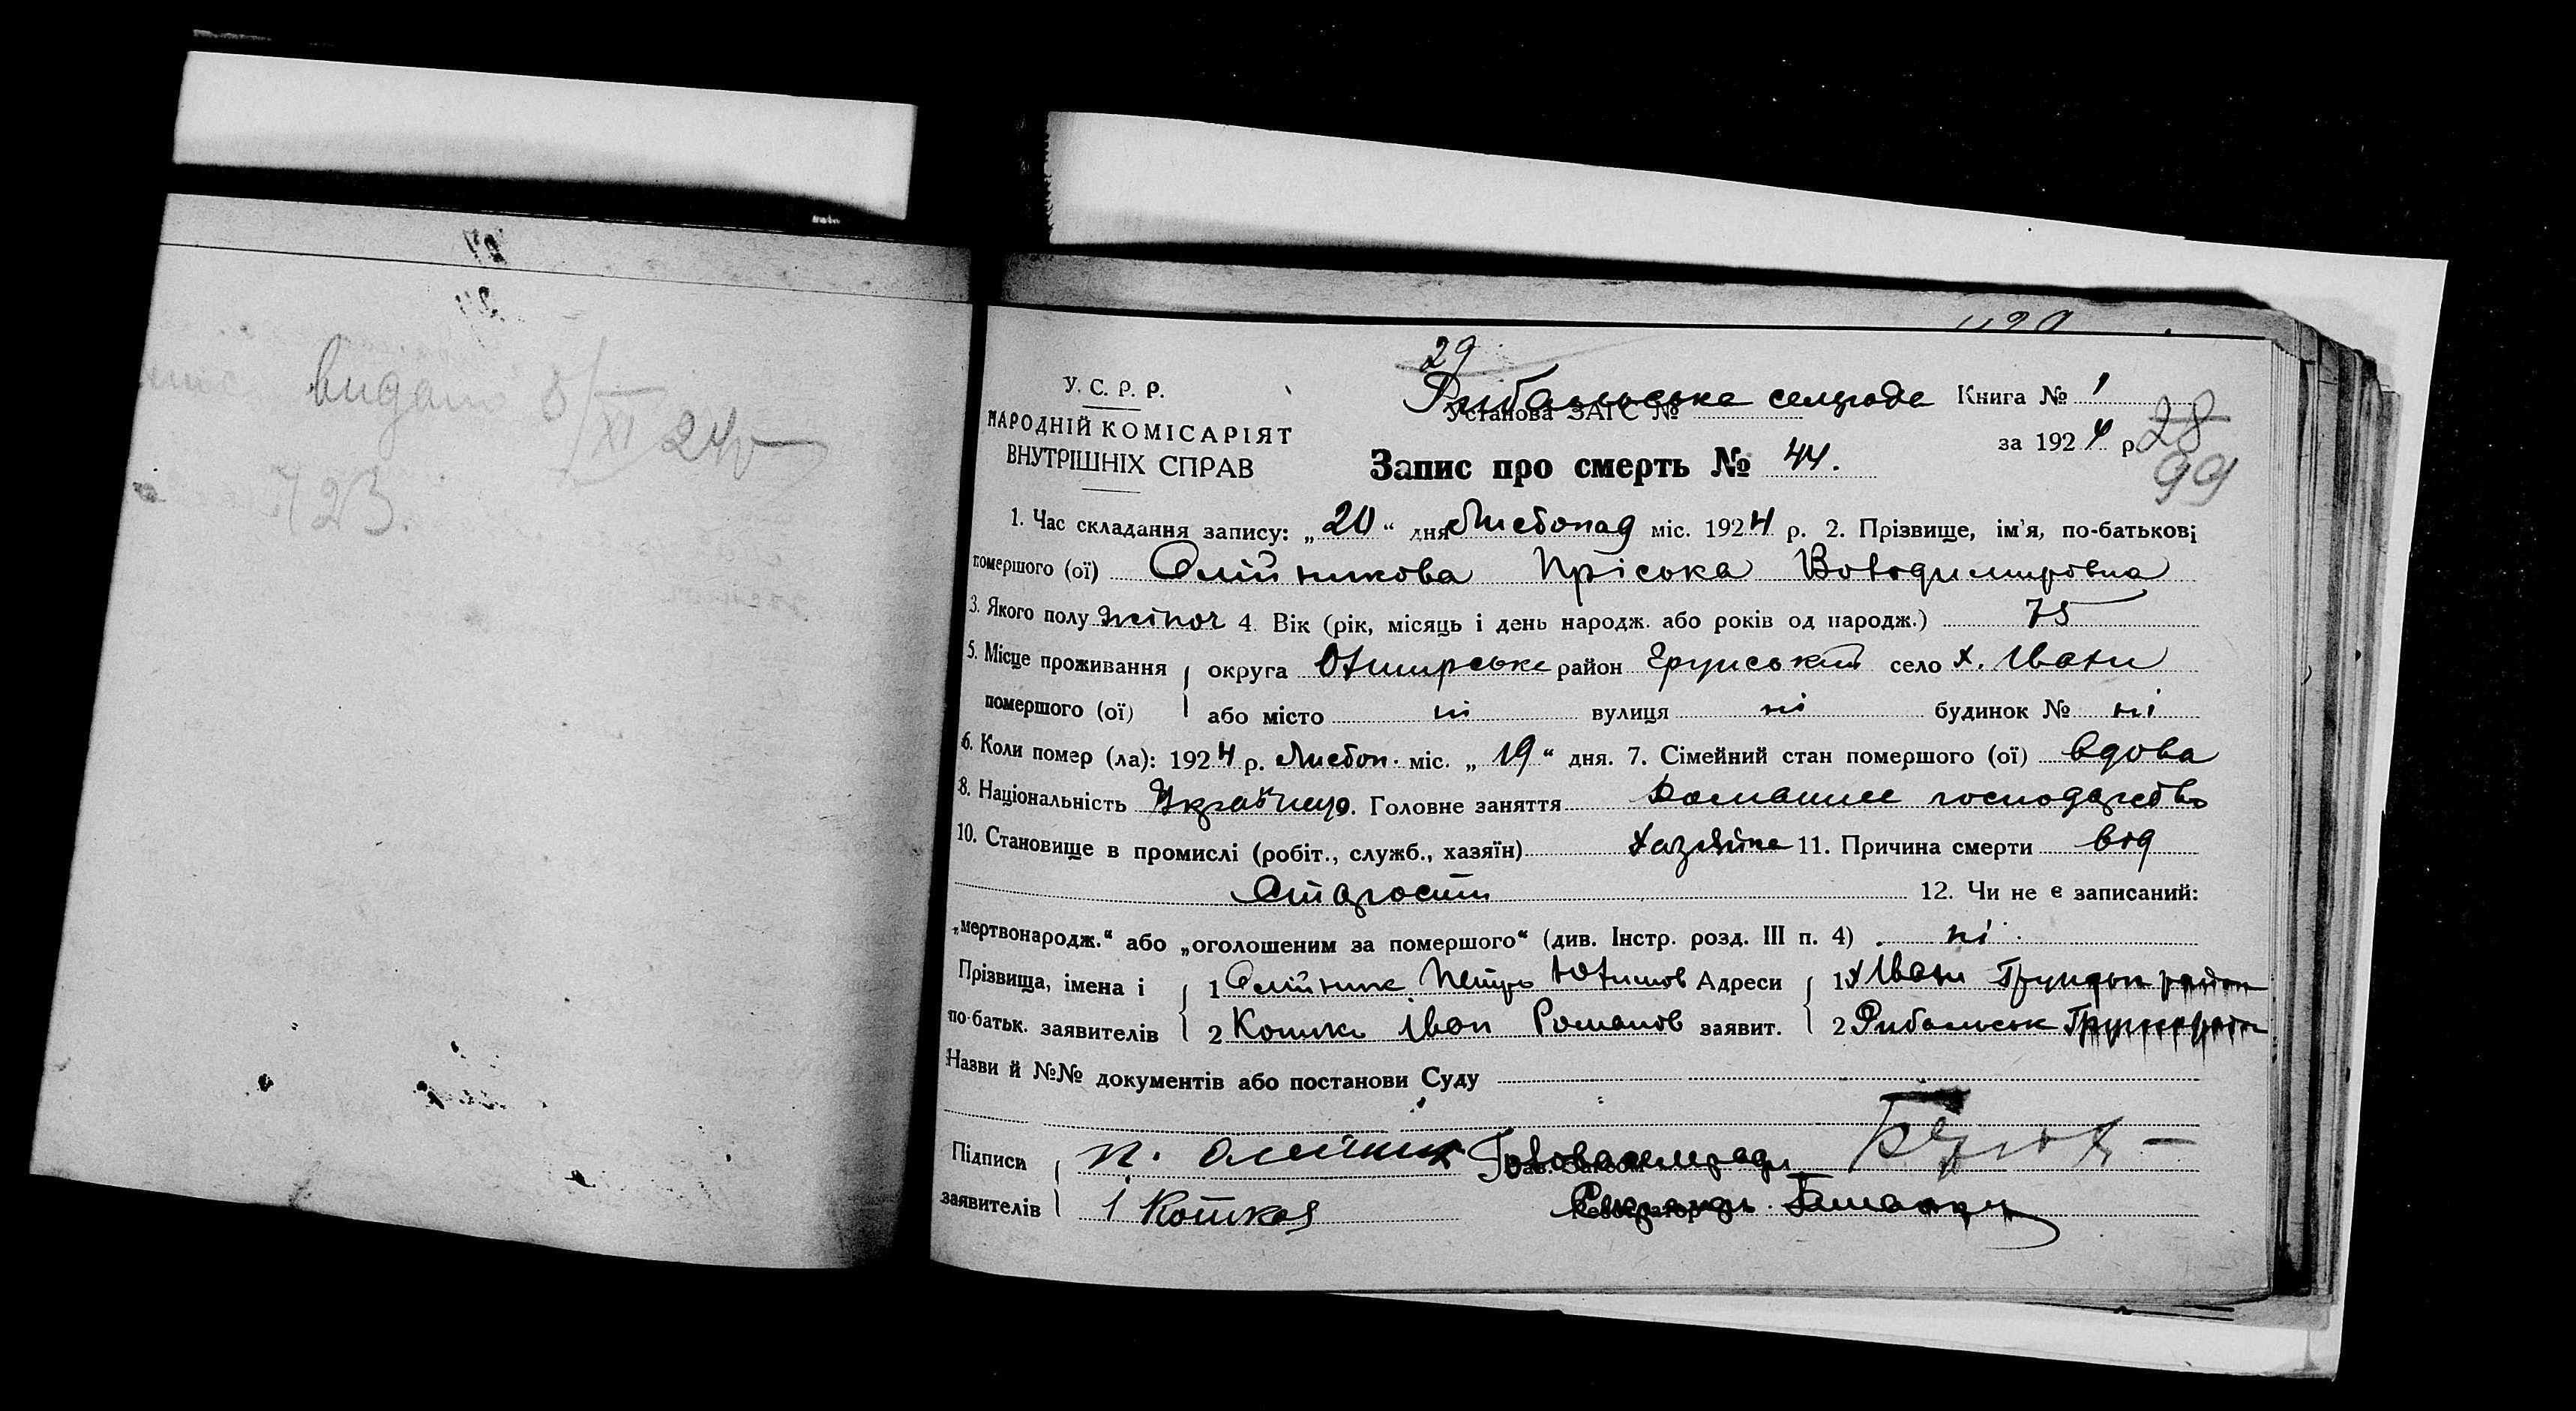 видано 8/XI 24р
723.
29
У. С. Р. Р.
НАРОДНІЙ КОМІСАРІЯТ
ВНУТРІШНІХ СПРАВ
Рибальська сельрада Книга № 1
Установа ЗАГС №
за 1924 р.
28
99
Запис про смерть № 44.
1. Час складання запису: „20“ дня Листопад міс. 1924 р. 2. Прізвище, ім'я, по-батькові
помершого (ої) Олійникова Пріська Володимировна
3. Якого полу жіноч 4. Вік (рік, місяць і день народж. або років од народж.) 75
5. Місце проживання округа Охтирське район Грунський село х. Івани
помершого (ої) або місто ні вулиця ні будинок № ні
6. Коли помер (ла): 1924 р. Листоп. міс. „19“ дня. 7. Сімейний стан помершого (ої) вдова
8. Національність Головне заняття Домашнее господарство
10. Становище в промислі (робіт., служб., хазяїн) Хазяїка 11. Причина смерти від
старости 12. Чи не є записаний:
„мертвонародж.“ або „оголошеним за помершого“ (див. Інстр. розд. III п. 4) ні.
Прізвища, імена і 1 Олійник Петро Юхимов Адреси 1 х Івани район
по-батьк. заявителів 2 Іван Романов заявит. 2 Рибальськ
Назви й №№ документів або постанови Суду
Підписи П. Олейник Голова сельради
заявителів І Котков Секретарь